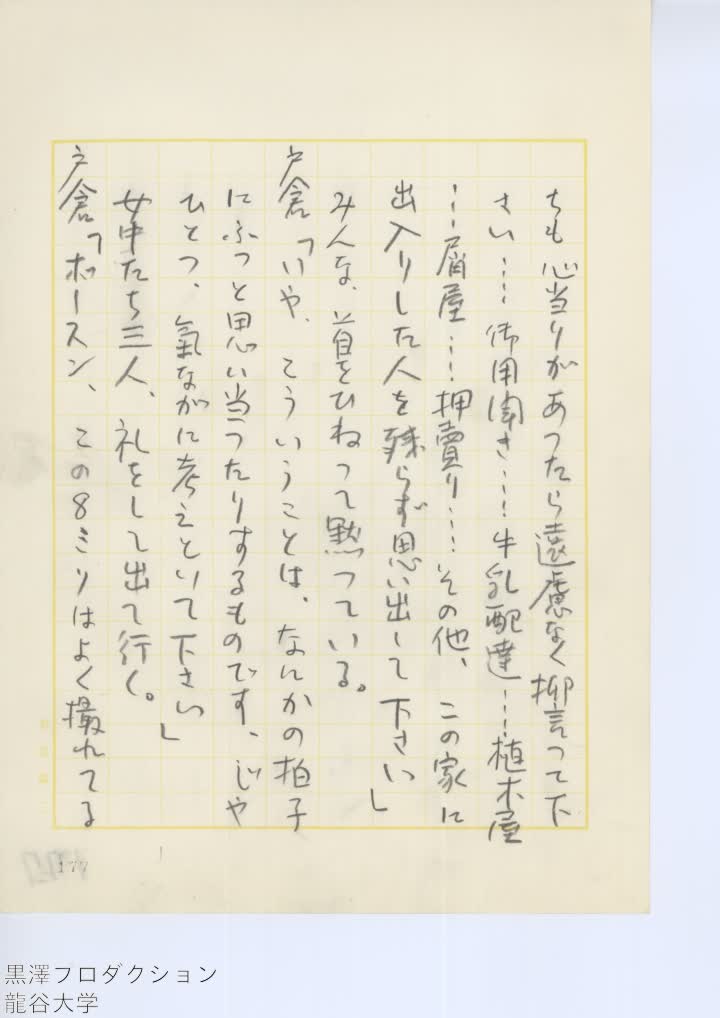 ちも心当りがあったら遠慮なく抑言って下
さい……御用聞き……牛乳配達……植木屋
……屑屋……押賣り……その他、この家に
出入りした人を残らず思い出して下さい」
みんな、首をひねって黙っている。
戸倉「いや、こういうことは、なにかの拍子
にふっと思い当ったりするものです、じゃ
ひとつ、氣ながに考えといて下さい」
女中たち三人、礼をして出て行く。
戸倉「ボースン、この8ミリはよく撮れてる
177
黒澤プロダクション
龍谷大学